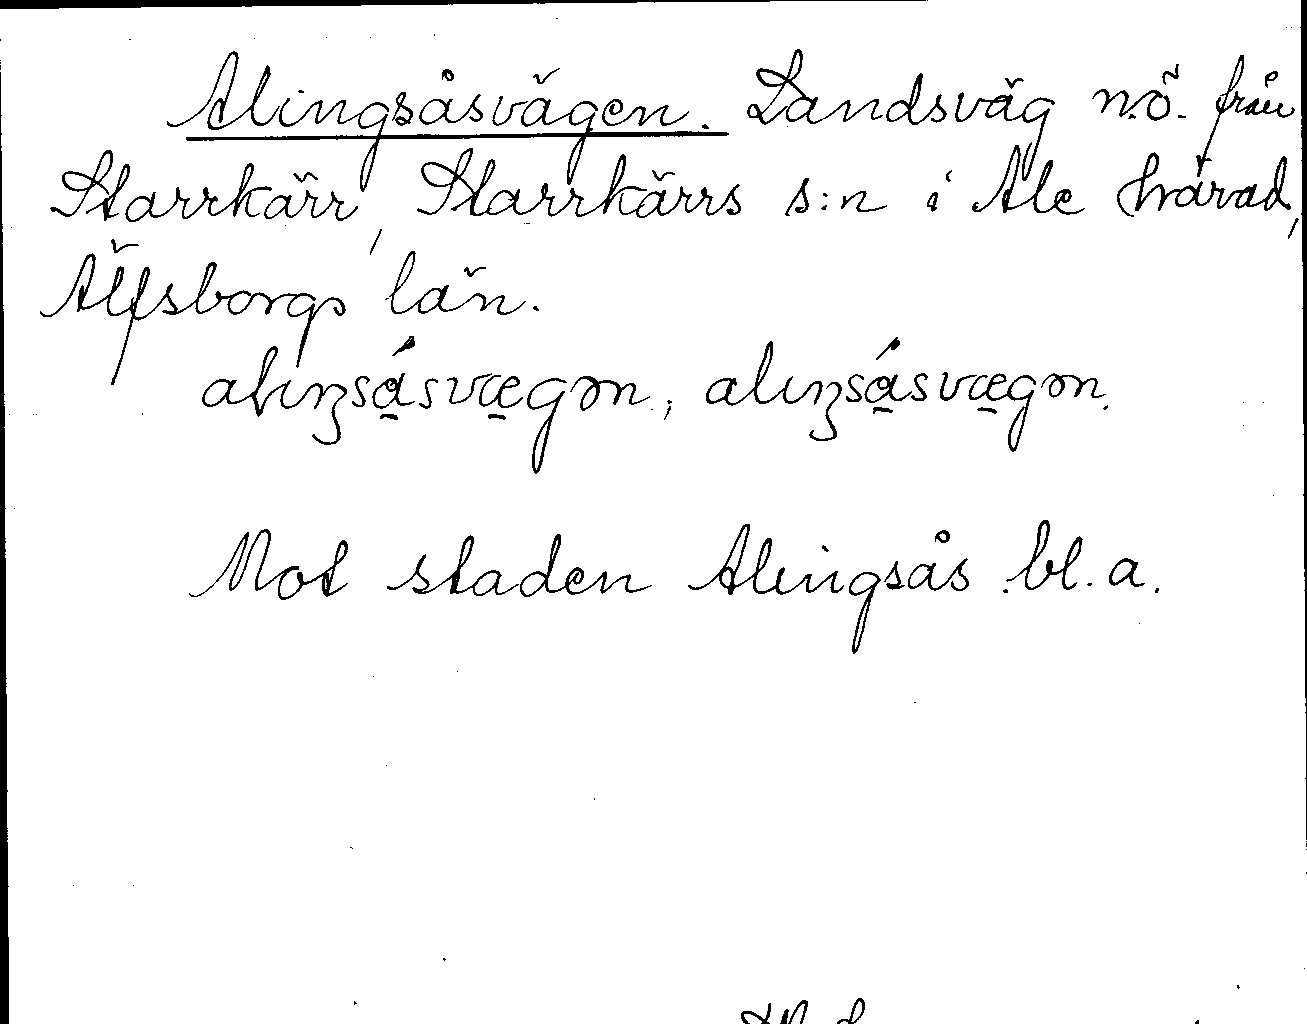 Alingsåsvägen. Landsväg n.ö. från
Starrkärr, Starrkärrs s:n i Ale härad,
Älfsborgs län.
alıŋsá̱svæ̱gən, alıŋsá̱svæ̱gən.
Mot staden Alingsås bl. a.